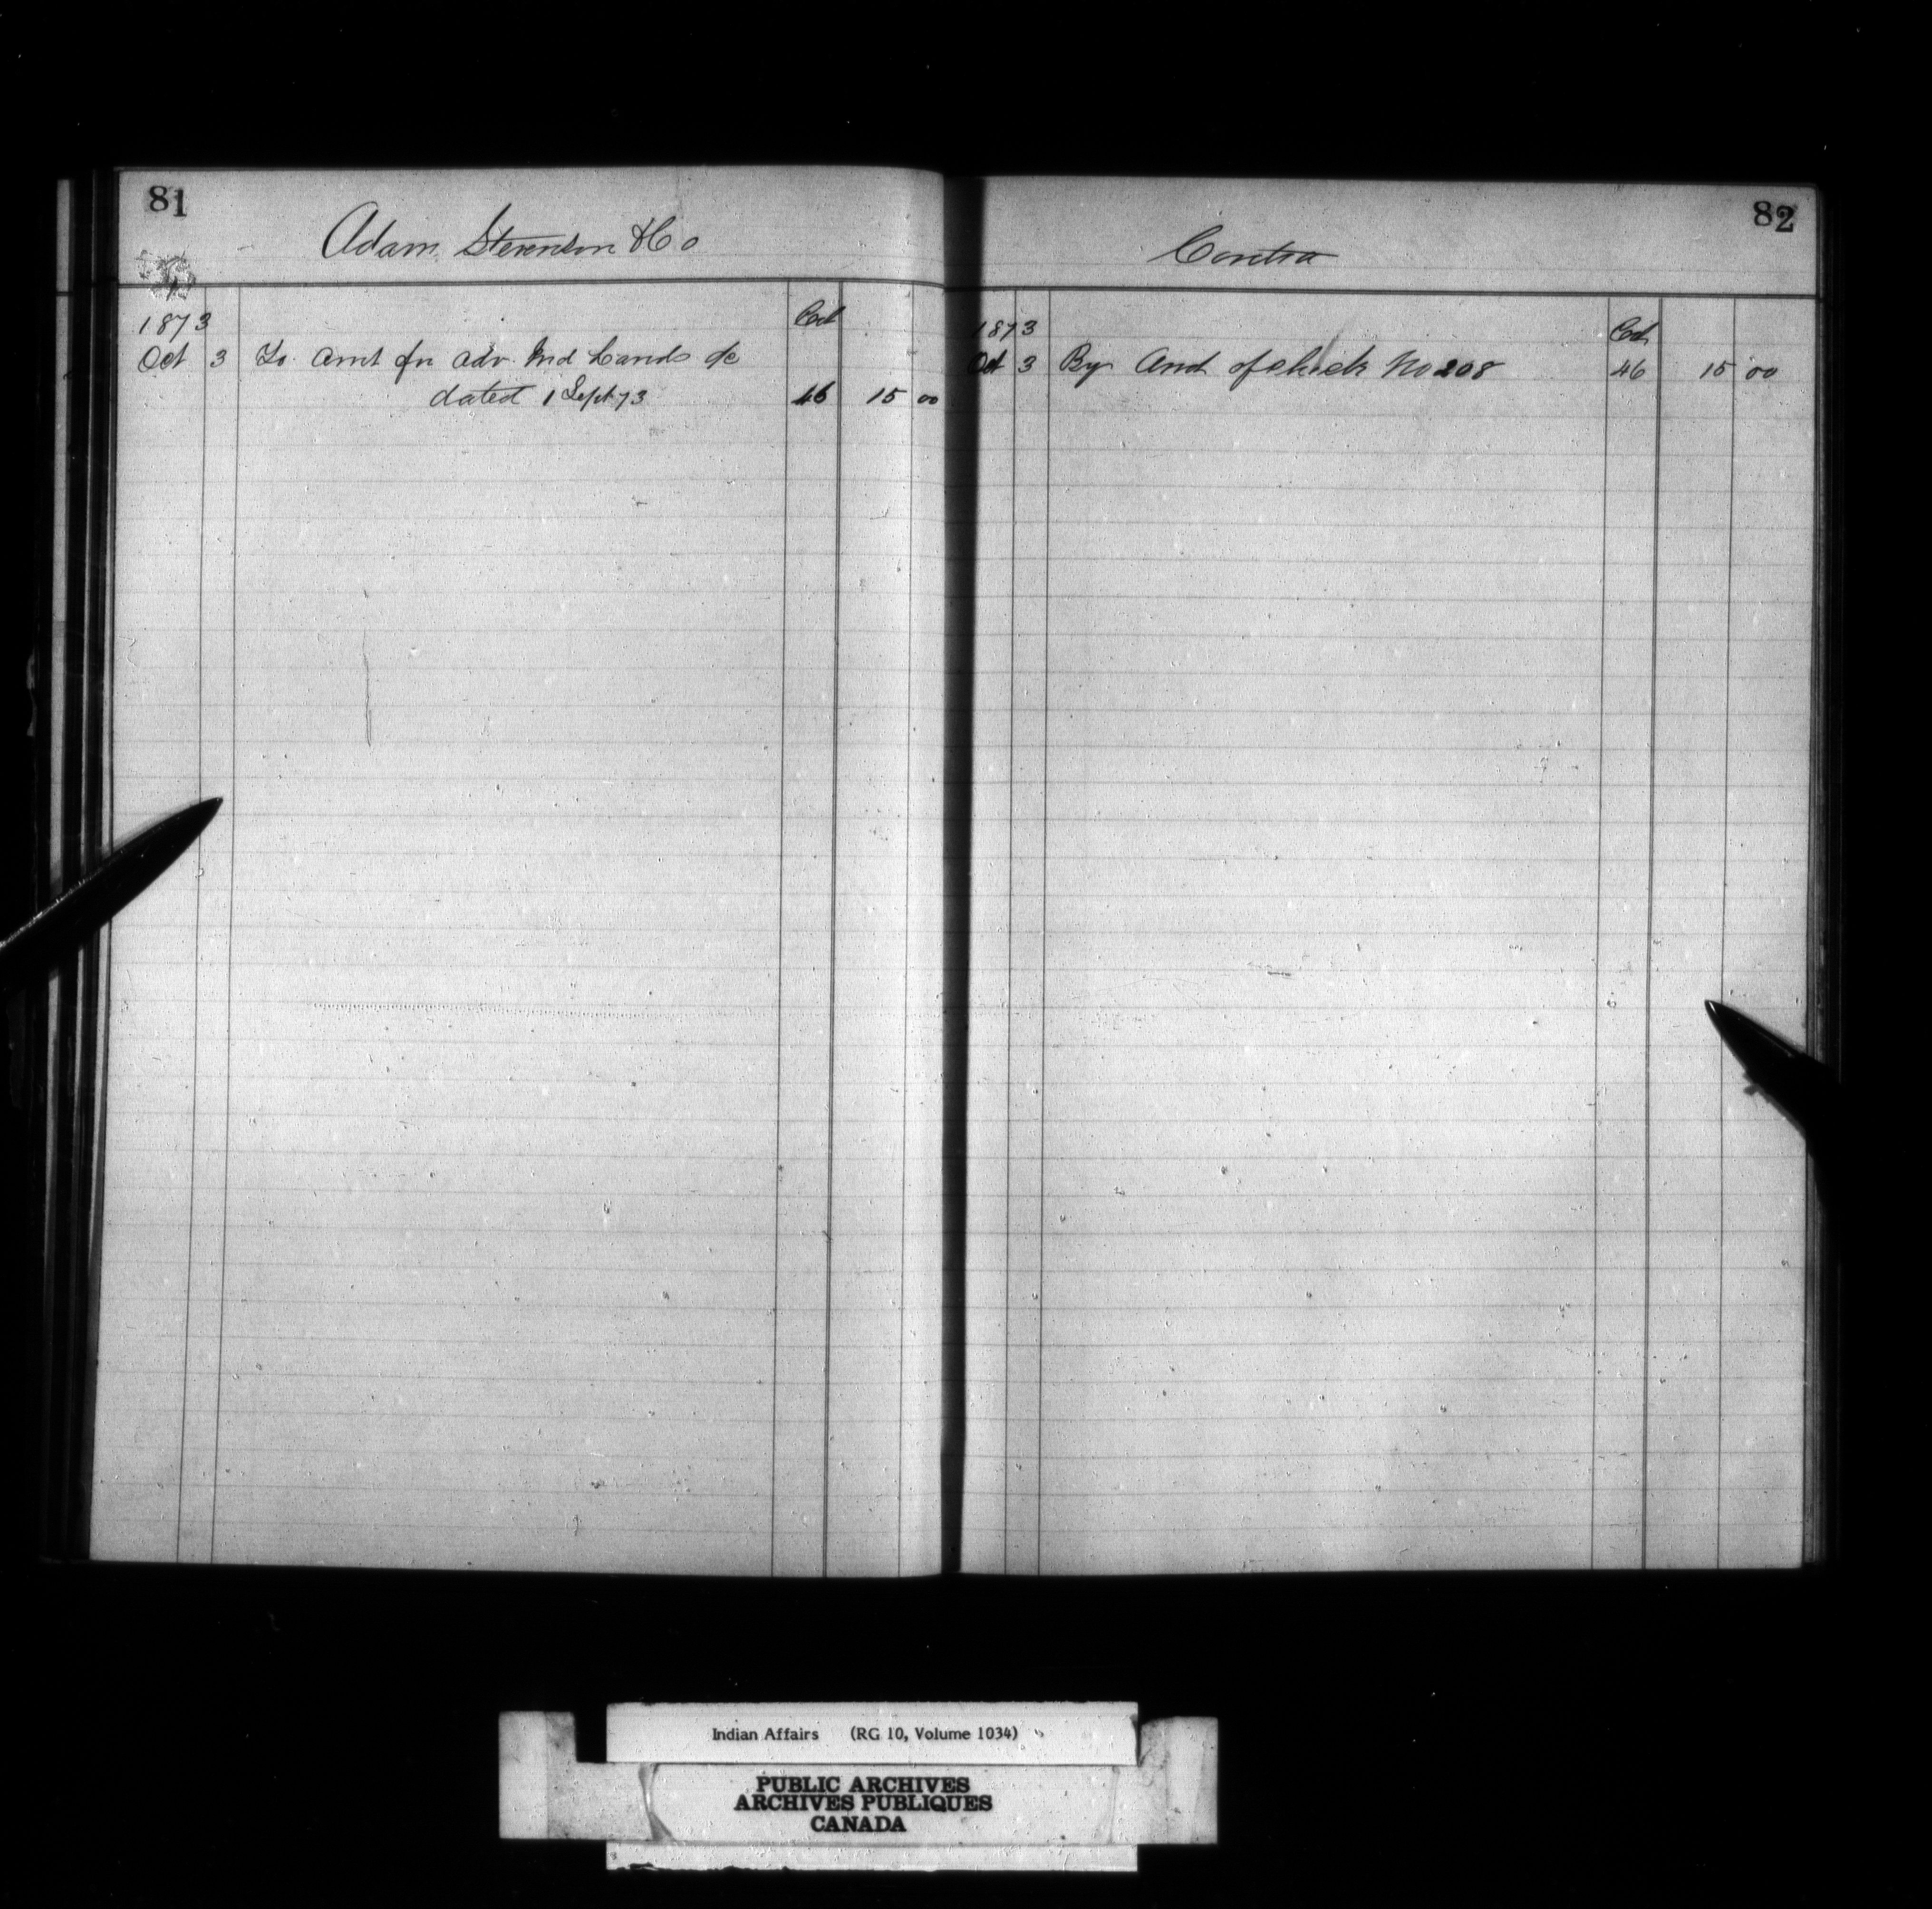 81
Adam, Stevenson & Co
1873
Oct 3 To Amt for adv. Ind Lands &c
dated 1 Sept 73 46 15 00
82
Contra
1873
Oct 3 By Amt of check No 208 46 15 00
Indian Affairs (RG 10, Volume 1034)
PUBLIC ARCHIVES
ARCHIVES PUBLIQUES
CANADA